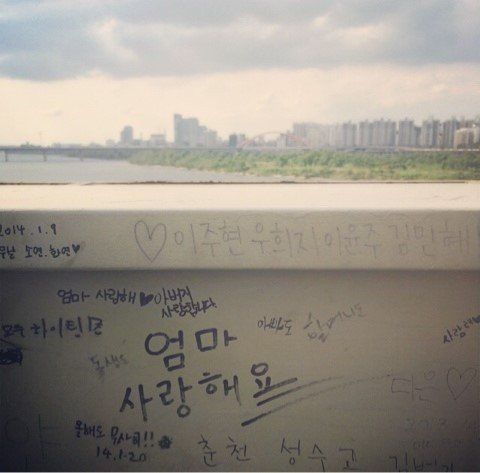 2014.1.9
소연.화연♥
♡이주현 우희지 이윤주 김민혜
엄마 사랑해♥
아버지
사랑합니다.
모두 화이팅
동생도
아빠도 할머니도
사랑해
엄마
사랑해요
다은♡
올해도 무사히!!
14.1.20
춘천 성수고